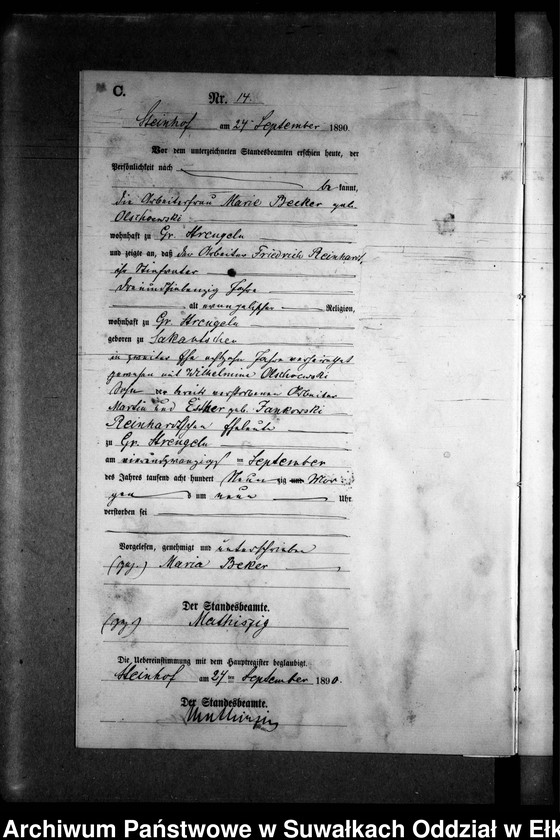 C.
Nr. 14.
Steinhof am 27 September 1890.
Vor dem unterzeichneten Standesbeamten erschien heute, der
Persönlichkeit nach
be kannt,
die Arbeiterfrau Marie Becker geb.
Olschewski
wohnhaft zu Gr. Strengeln
und zeigte an, daß der Arbeiter Friedrich Reinhardt,
ihr Stiefvater
dreiundsiebenzig Jahre
alt evangelischer Religion,
wohnhaft zu Gr. Strengeln
geboren zu
in zweiter Ehe Jahre verheirathet
gewesen mit Wilhelmine Olschewski
Sohn der bereits verstorbenen Arbeiter
Martin und Esther geb. Jankowski
Reinhardtschen Eheleute
zu Gr. Strengeln
am vierundzwanzigsten September
des Jahres tausend acht hundert Neunzig und Mor
gen um neun Uhr
verstorben sei
Vorgelesen, genehmigt und unterschrieben
(gez.) Maria Beker
Der Standesbeamte.
(gez) Mathiszig
Die Uebereinstimmung mit dem Hauptregister beglaubigt.
Steinhof am 27ten September 1890.
Der Standesbeamte.
Mathiszig
Archiwum Państwowe w Suwałkach Oddział w Ełk